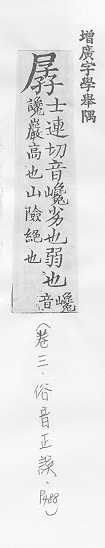 增廣字學舉隅
孱
士連切音巉劣也弱也
巉巖高也山險絕也
巉音
（卷三．俗音正誤．P488）